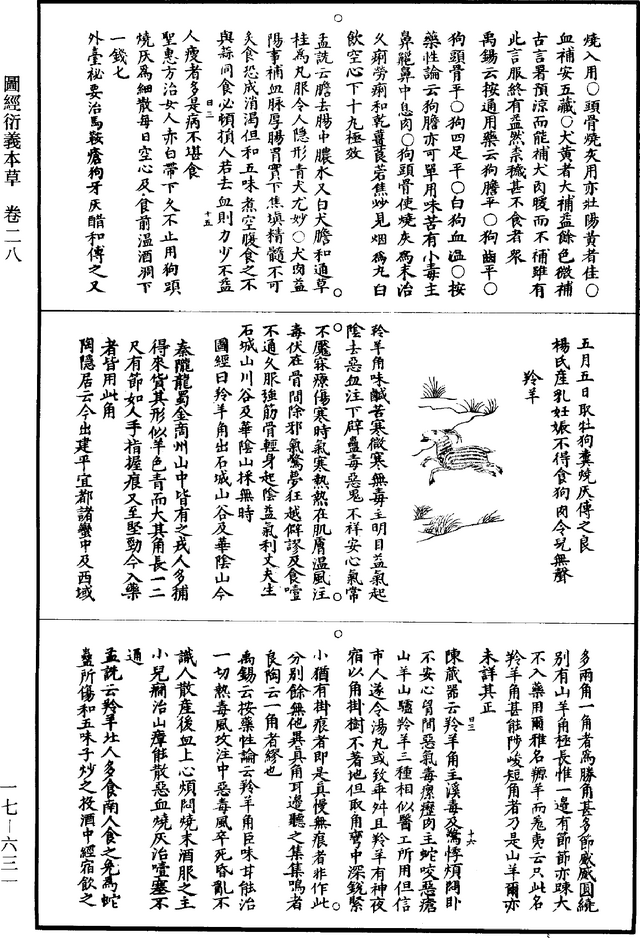 圖經衍義本草　卷二八
燒入用○頭骨燒灰用亦壯陽黃者佳○
血補安五藏○犬黃者大補益餘色微補
古言暑預涼而能補犬肉暖而不補雖有
此言服終有益然柰穢甚不食者衆
禹錫云按通用藥云狗膽平○狗齒平○
狗頭骨平○狗四足平○白狗血溫○按
藥性論云狗膽亦可單用味苦有小毒主
鼻齆鼻中息肉○狗頭骨使燒灰爲末治
久痢勞痢和乾薑莨菪焦炒見烟爲丸白
飲空心下十九極效
孟詵云膽去腸中膿水又白犬膽和通草
桂爲丸服令人隱形青犬尤妙○犬肉益
陽事補血脉厚腸胃實下焦填精髓不可
炙食恐成消渴但和五味煮空腹食之不
與蒜同食必頓損人若去血則力少不益
人瘦者多是病不堪食
日二
十五
聖惠方治女人赤白帶下久不止用狗頭
燒灰爲細散每日空心及食前溫酒調下
一錢七
外臺秘要治馬鞍瘡狗牙灰醋和傳之又
五月五日取牡狗糞燒灰傳之良
楊氏產乳妊娠不得食狗肉令兒無聲
羚羊
羚羊角味鹹苦寒微寒無毒主明目益氣起
陰去惡血注下辟蠱毒惡鬼不祥安心氣常
不魘寐療傷寒時氣寒熱熱在肌膚溫風注
毒伏在骨間除邪氣驚夢狂越僻謬及食噎
不通久服強筋骨輕身起陰益氣利丈夫生
石城山川谷及華陰山採無時
圖經曰羚羊角出石城山谷及華陰山今
秦隴龍蜀金商州山中皆有之戎人多捕
得來貨其形似羊色青而大其角長一二
尺有節如人手指握痕又至堅勁今入藥
者皆用此角
陶隱居云今出建平宜都諸蠻中及西域
多兩角一角者爲勝角甚多節蹙蹙圓繞
別有山羊角極長惟一邊有節節亦踈大
不入藥用爾雅名羱羊而羌夷云只此名
羚羊角甚能陟峻短角者乃是山羊爾亦
未詳其正
日三
十六
陳藏器云羚羊角主溪毒及驚悸煩悶卧
不安心胷間惡氣毒瘰癧肉主蛇咬惡瘡
山羊山驢羚羊三種相似醫工所用但信
市人遂令湯丸或致乖舛且羚羊有神夜
宿以角掛樹不著地但取角彎中深銳緊
小猶有掛痕者即是真慢無痕者非作此
分別餘無他異真角耳邊聽之集集鳴者
良陶云一角者繆也
禹錫云按藥性論云羚羊角臣味甘能治
一切熱毒風攻注中惡毒風卒死昏亂不
識人散產後血上心煩悶燒末酒服之主
小兒癇治山瘴能散惡血燒灰治噎塞不
通
孟詵云羚羊北人多食南人食之免爲蛇
蟲所傷和五味子炒之投酒中經宿飲之
一七－六三一